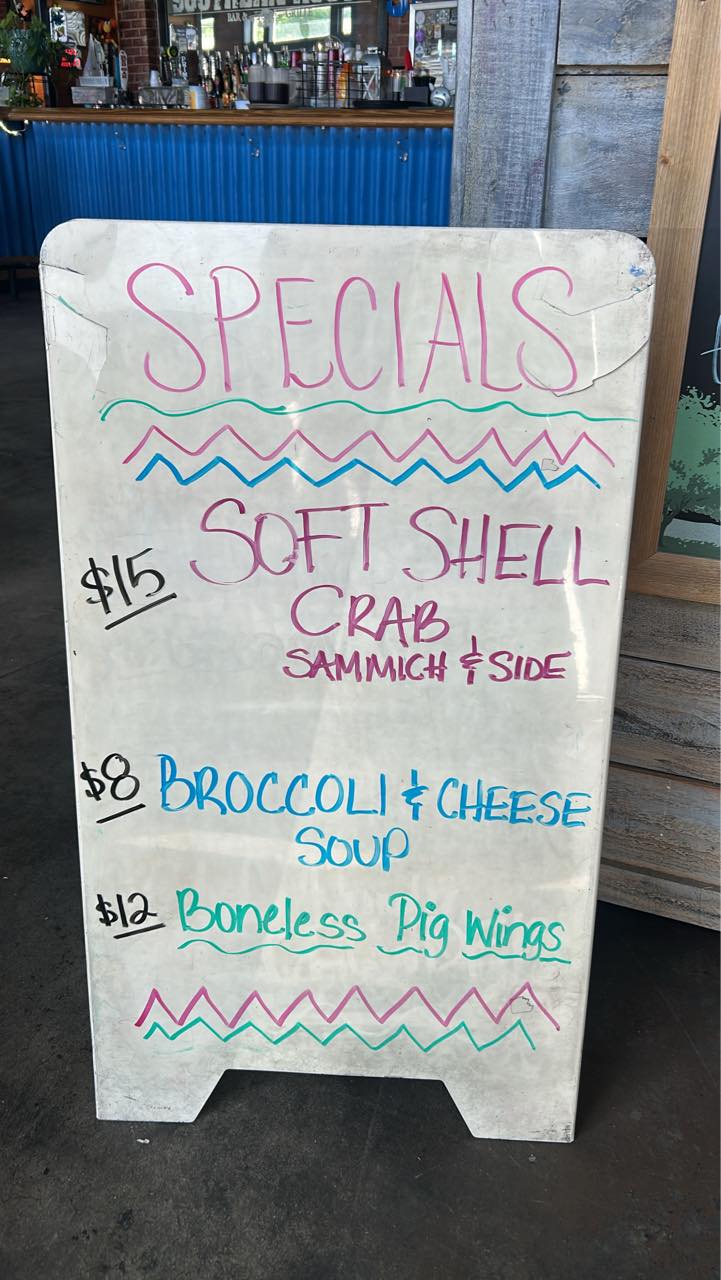 SPECIALS
$15 SOFT SHELL
CRAB
SAMMICH & SIDE
$8 BROCCOLI & CHEESE
SOUP
$12 Boneless Pig Wings